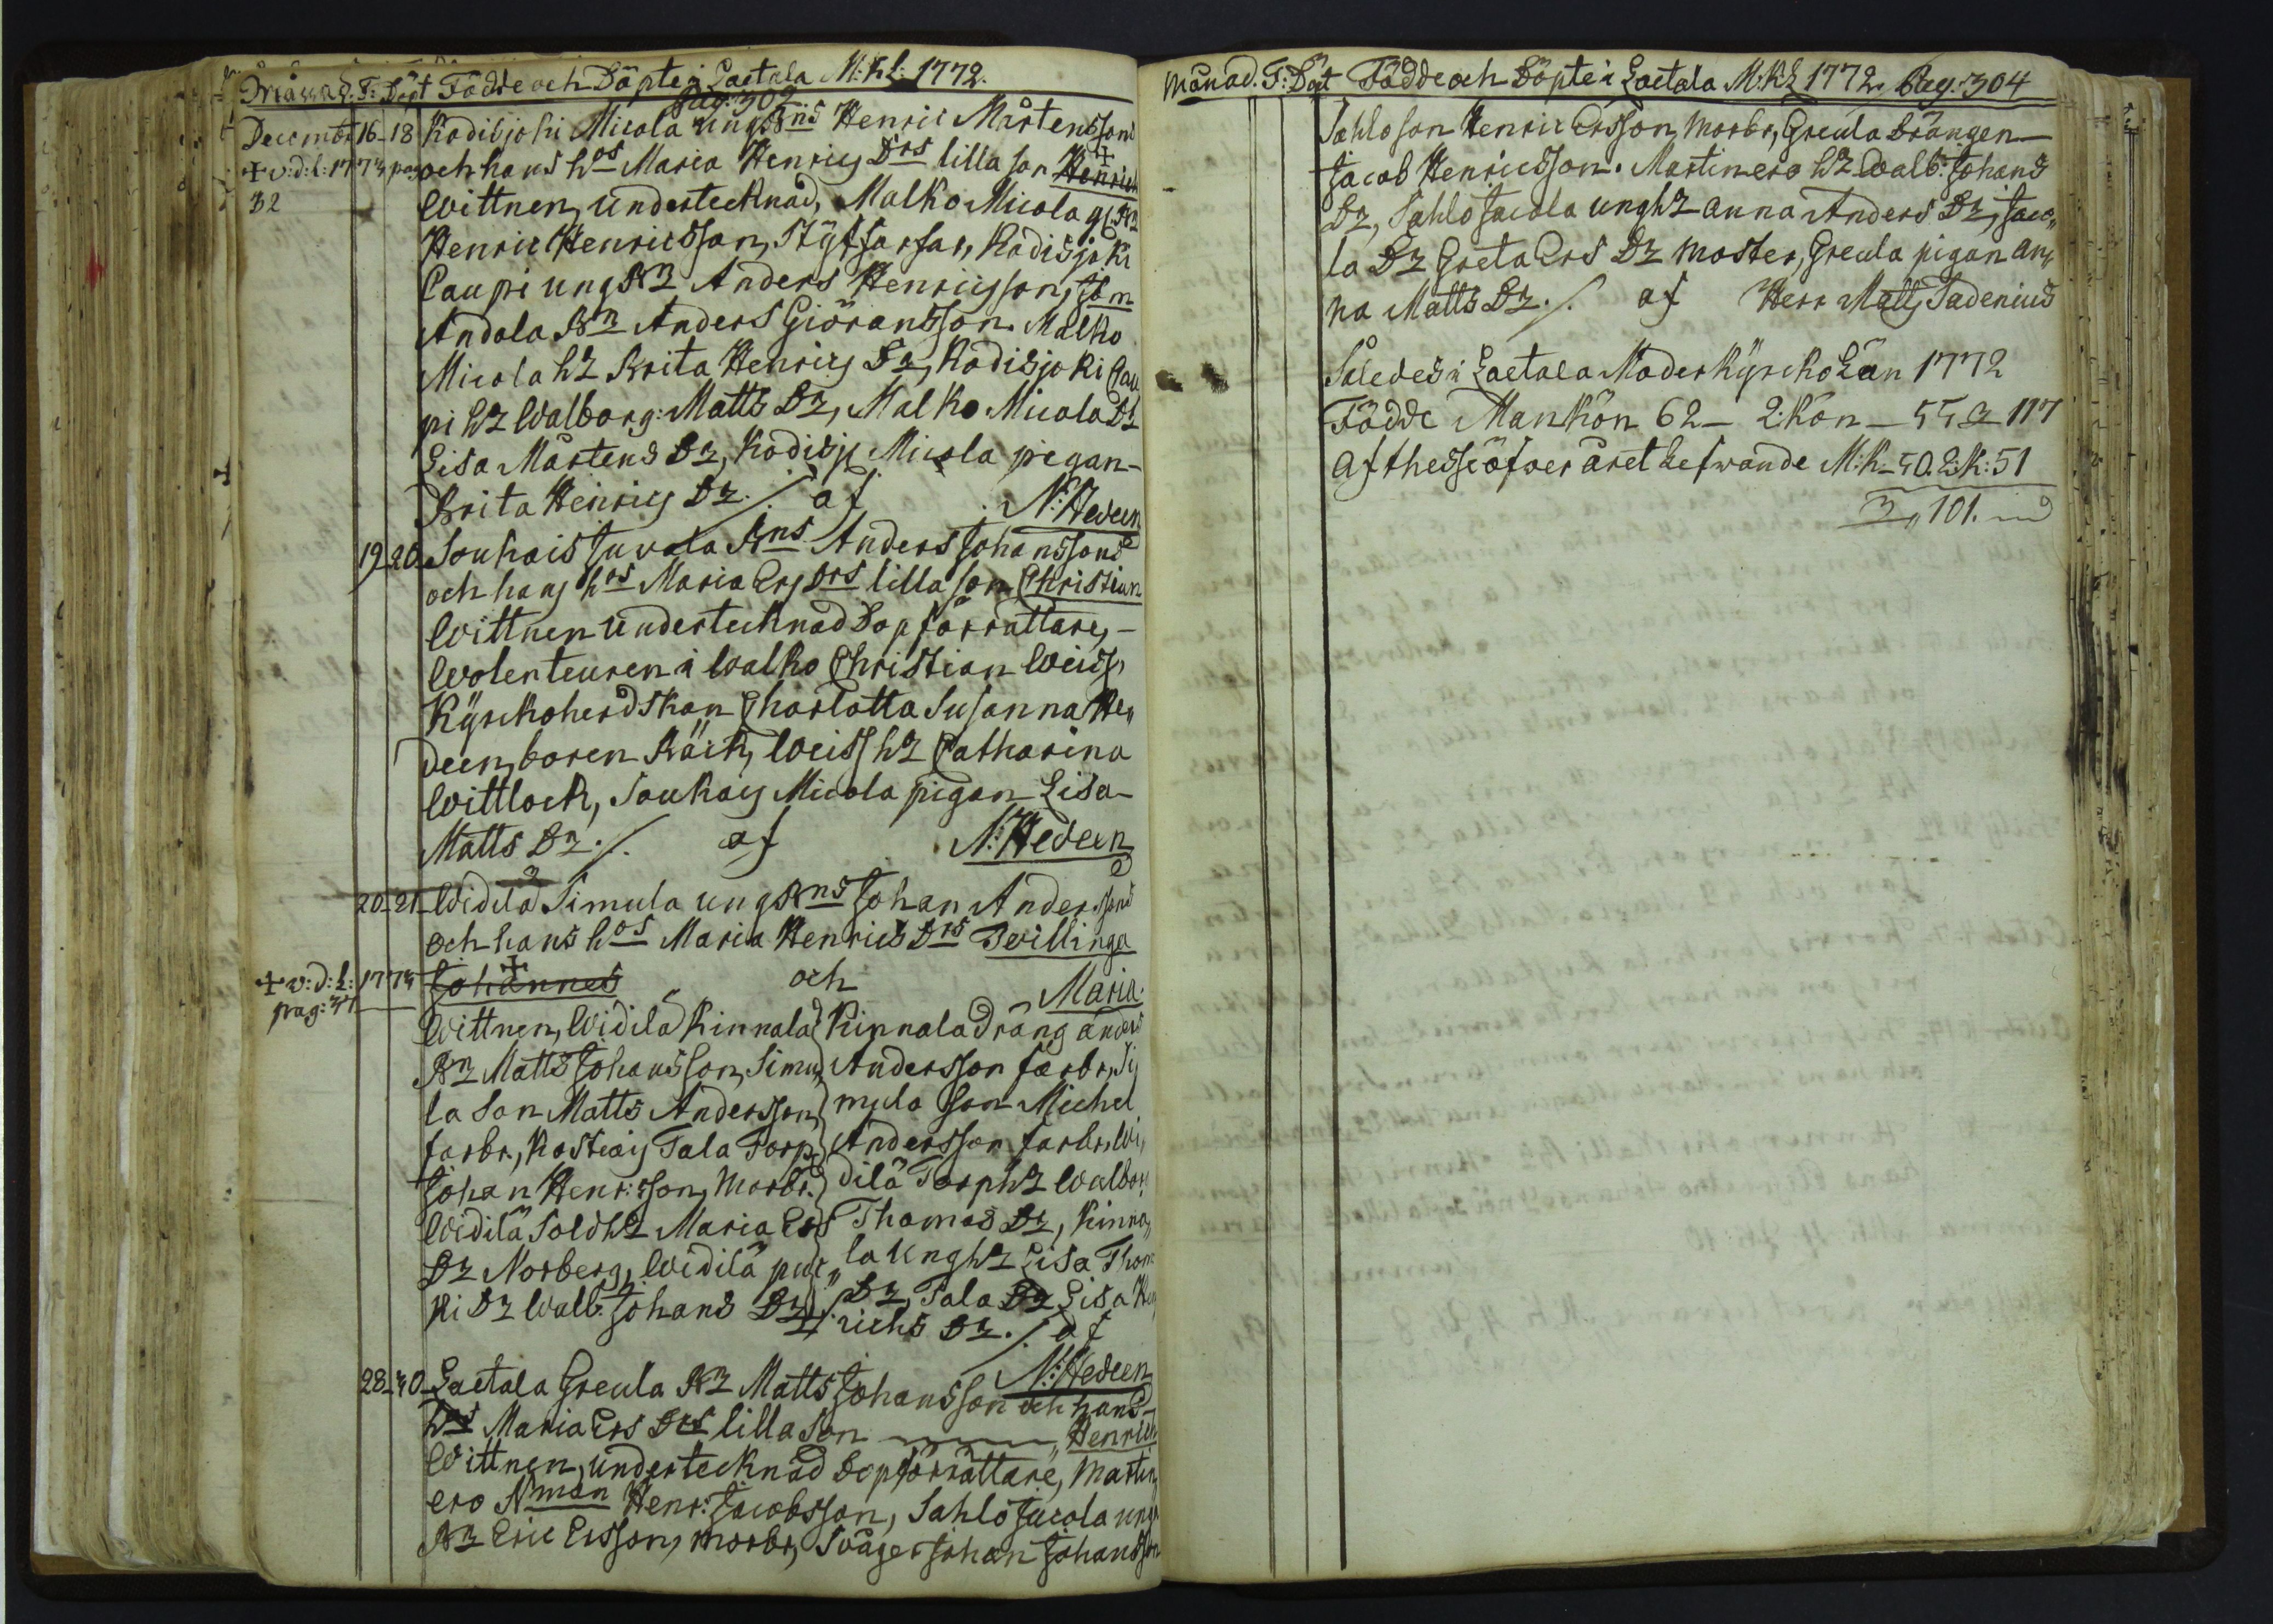 Månad. F: Döpt Födde och Döpte i Laetala M:K:L: 1772.
pag: 303
Decembr 16-18 Kodisjoki Micola ungBns Henric Mårtenssons
+ v:d:l: 1773 pag och hans hos Maria Henrics Drs lilla son Henrich
32 Wittnen, undertecknad, Malko Micola gl Bn
Henric Henricsson, Styffarfar, Kodisjoki
Caupi ungBn Anders Henricsson, Jem
Andola Bn Anders Giöransson. Malko
Micola h2 Brita Henrics Dr, Kodisjoki Cau
pi h2 Walborg: Matts Dr, Malko Micola Dr
Lisa Mårtens Dr, Kodisj. Micola pigan-
Brita Henrics Dr ./. af N: Hedeen
19-20 Souhais Juvala Bns Anders Johanssons
och hans hos Maria Ers Drs lilla son Christian
Wittnen undertecknad Dopförrättare,-
Wolenteuren i Walko Christian Weiss,
Kyrckoherdskan Charlotta Susanna He,,
deen, boren Bäck, Weiss h2 Catharina
Wittlock, Soukais Micola pigan Lisa-
Matts Dr ./. af N: Hedeen
20-21 Widilä Simula ungBns Johan Anderssons
och hans hos Maria Henrics Drs Twillingar
+ v:d:l: 1773 Johannes och Maria.
pag: 37
Wittnen, Widilä Kinnala Kinnala Dräng Anders
Bn Matts Johansson, Simu,, Andersson farbr, Si
la Son Matts Andersson, mula Son Michel
farbr, Kosteais Tala Torp: Andersson farbr, Wi,,
Johan Henr:sson, Morbr. dilä Torph2 Walbor
Widilä Sold h2 Maria Ers Thomas Dr, Kinna,,
Dr Norberg, Widilä pur,, la Ungh2 Lisa Thom
ki Dr Walb: Johans Dr ./. Dr, Tala Dr Lisa Hen
richs Dr ./. af
N: Hedeen
28-30 Laetala Greula Bn Matts Johansson och hans-
hos Maria Ers Drs lilla Son Henrich
Wittnen, undertecknad Dopförrättare, Martin,,
ero Nman Henr: Jacobsson, Sahlo Jacola ung
Bn Eric Ersson, morbr, Svåger Johan Johansson
Månad. F: Döpt Födde och Döpte i Laetala M:K:L 1772. Pag: 304
Sahlo son Henric Ersson, Morbr, Greula Drängen-
Jacob Henricsson. Martinero h2 Walb: Johans
Dr, Sahlo Jacola ungh2 Anna Anders Dr, Jaco,,
la Dr Greta Ers Dr Moster, Greula pigan An,,
na Matts Dr ./. af Herr Matts Tadenius
Således i Laetala Moderkyrcko Län 1772
Födde Mankön 62- Q:kön- 55 117
Af thesse öfver året lefwande M:k- 50. Q:k: 51
101.